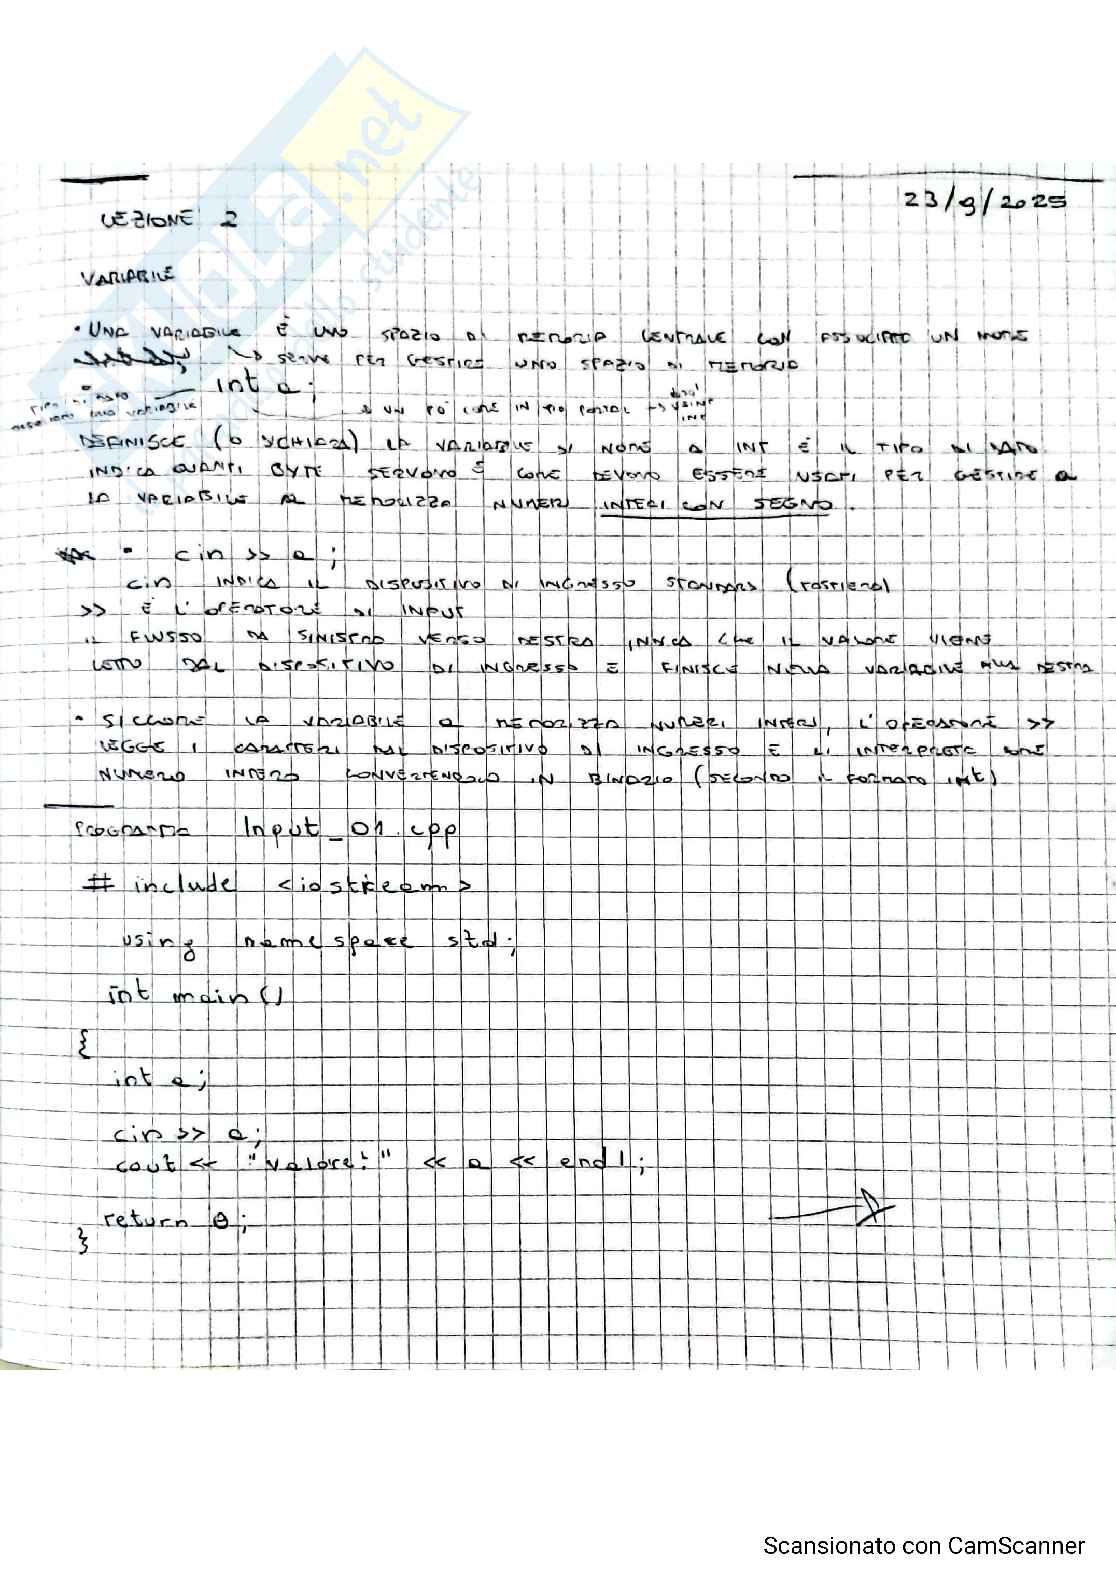 23/9/2025
LEZIONE 2
VARIABILE
• UNA VARIABILE È UNO SPAZIO DI MEMORIA CENTRALE CON ASSOCIATO UN NOME
↳ SERVE PER GESTIRE UNO SPAZIO DI MEMORIA
• int a;
TIPO DI DATO
UN PO' COME IN
DEFINISCE (O DICHIARA) LA VARIABILE DI NOME a INT È IL TIPO DI DATO
INDICA QUANTI BYTE SERVONO E COME DEVONO ESSERE USATI PER GESTIRE a
LA VARIABILE a MEMORIZZA NUMERI INTERI CON SEGNO.
• cin >> a;
cin INDICA IL DISPOSITIVO DI INGRESSO STANDARD (tastiera)
>> È L'OPERATORE DI INPUT
IL FLUSSO DA SINISTRA VERSO DESTRA INDICA CHE IL VALORE VIENE
LETTO DAL DISPOSITIVO DI INGRESSO E FINISCE NELLA VARIABILE ALLA DESTRA
• SICCOME LA VARIABILE a MEMORIZZA NUMERI INTERI, L'OPERATORE >>
LEGGE I CARATTERI DAL DISPOSITIVO DI INGRESSO E LI INTERPRETA COME
NUMERO INTERO CONVERTENDOLO IN BINARIO (SECONDO IL FORMATO int)
PROGRAMMA Input_01.cpp
# include <iostream>
using namespace std;
int main()
{
int a;
cin >> a;
cout << "Valore:" << a << endl;
return 0;
}
SKUOLA.net
Scansionato con CamScanner